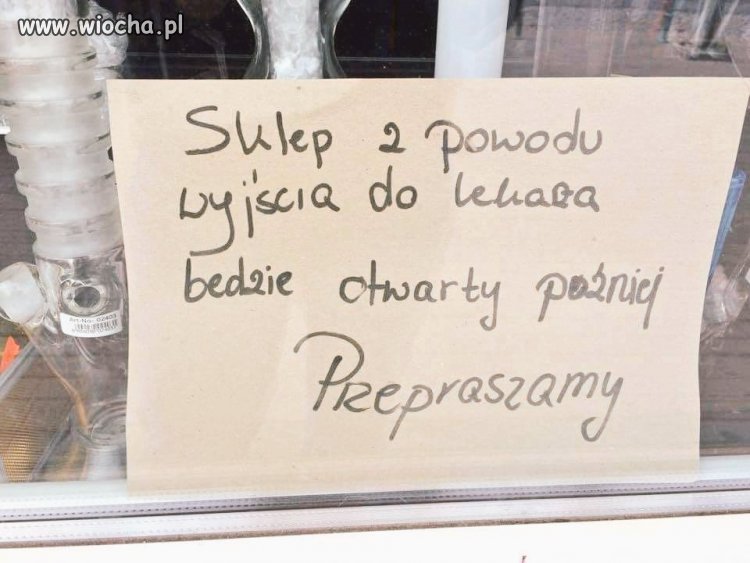 www.wiocha.pl
Sklep z powodu
wyjścia do lekaża
bedzie otwarty poźniej
Przepraszamy
Art-No.: 02403